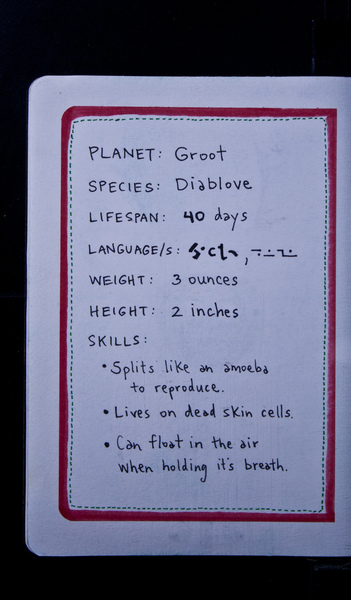 PLANET: Groot
SPECIES: Diablove
LIFESPAN: 40 days
LANGUAGE/S:
WEIGHT: 3 ounces
HEIGHT: 2 inches
SKILLS:
• Splits like an amoeba
to reproduce.
• Lives on dead skin cells.
• Can float in the air
when holding it's breath.